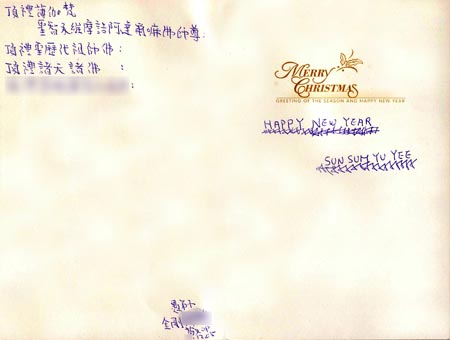 頂禮薄伽梵
聖智天維摩詰阿達爾嘛佛師尊
頂禮聖歷代祖師佛：
頂禮諸天諸佛：
MERRY
CHRISTMAS
GREETING OF THE SEASON AND HAPPY NEW YEAR
HAPPY NEW YEAR
SUN SUM YU YEE